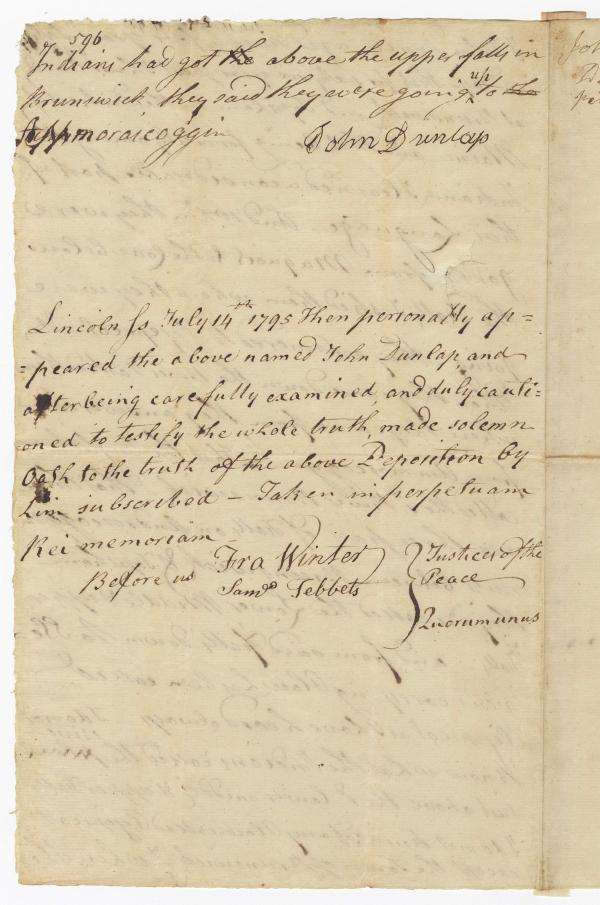 596
Indians had got the above the upper falls in
Brunswick they said they were going up to the
Ammoraicoggin
John Dunlap
Lincoln Ss July 14th 1795 Then personally ap=
=peared the above named John Dunlap, and
after being carefully examined, and duly cauti=
=oned to testify the whole truth, made solemn
Oath to the truth of the above Deposition by
him subscribed — Taken in perpetuam
Rei memoriam
Before us Fra Winter
Saml Tebbets
Justices of the
Peace
Quorum unus
Joh